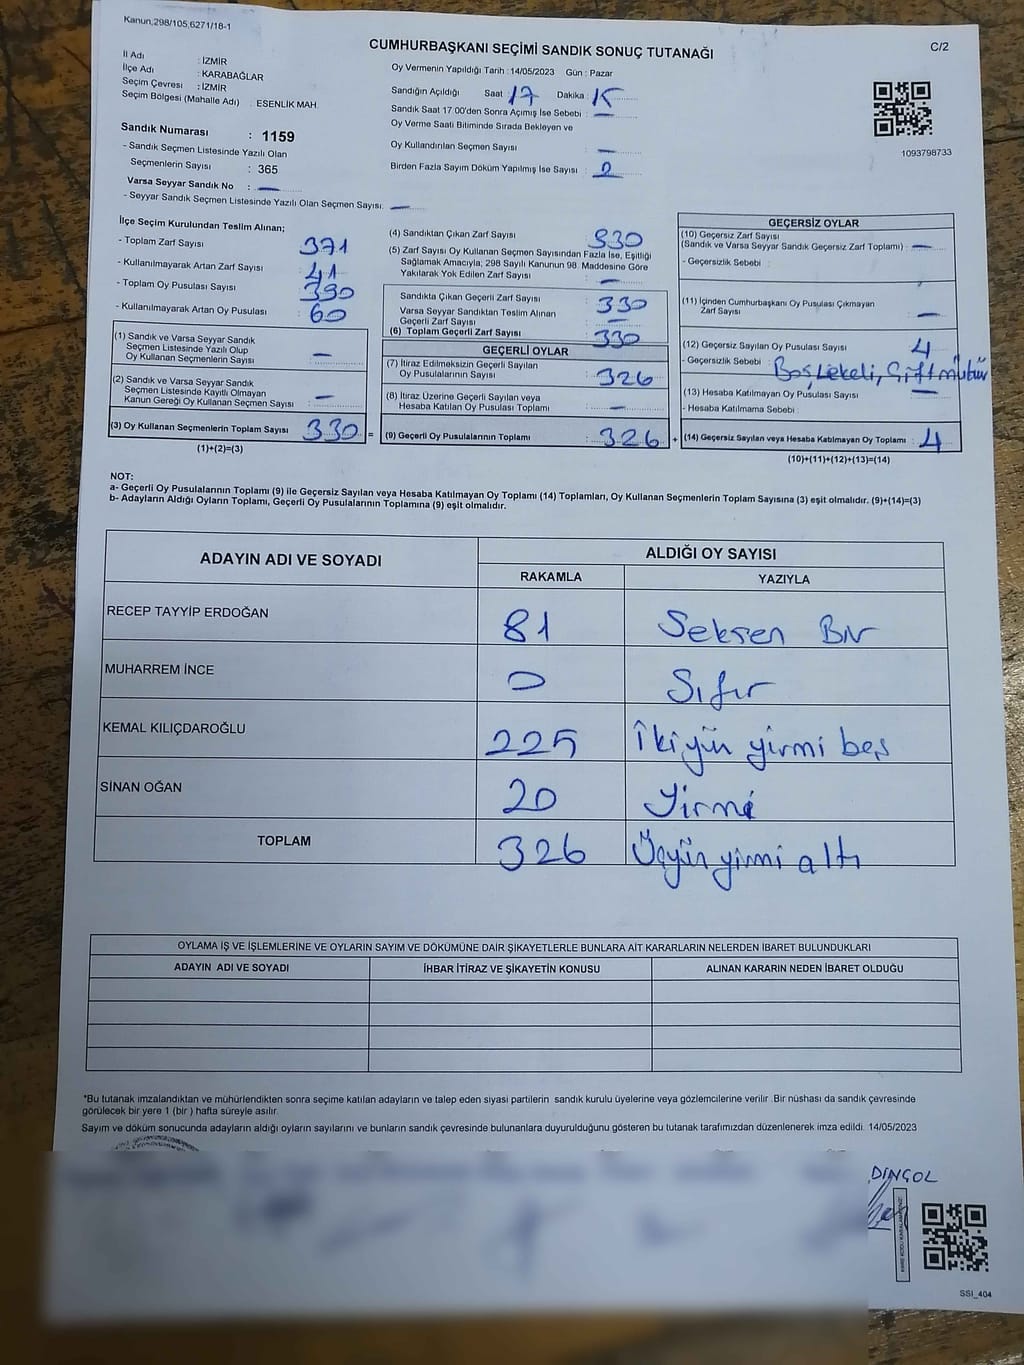 Kanun,298/105,6271/18-1
CUMHURBAŞKANI SEÇİMİ SANDIK SONUÇ TUTANAĞI
C/2
İl Adı : İZMİR
İlçe Adı : KARABAĞLAR
Seçim Çevresi : İZMİR
Seçim Bölgesi (Mahalle Adı) : ESENLİK MAH.
Sandık Numarası : 1159
- Sandık Seçmen Listesinde Yazılı Olan
Seçmenlerin Sayısı : 365
Varsa Seyyar Sandık No : —
- Seyyar Sandık Seçmen Listesinde Yazılı Olan Seçmen Sayısı: —
Oy Vermenin Yapıldığı Tarih : 14/05/2023 Gün : Pazar
Sandığın Açıldığı Saat 17 Dakika : 15
Sandık Saat 17.00'den Sonra Açımış İse Sebebi : —
Oy Verme Saati Bitiminde Sırada Bekleyen ve
Oy Kullandırılan Seçmen Sayısı : —
Birden Fazla Sayım Döküm Yapılmış İse Sayısı : 2
1093798733
İlçe Seçim Kurulundan Teslim Alınan;
- Toplam Zarf Sayısı : 371
- Kullanılmayarak Artan Zarf Sayısı : 41
- Toplam Oy Pusulası Sayısı : 390
- Kullanılmayarak Artan Oy Pusulası : 60
(1) Sandık ve Varsa Seyyar Sandık
Seçmen Listesinde Yazılı Olup
Oy Kullanan Seçmenlerin Sayısı : —
(2) Sandık ve Varsa Seyyar Sandık
Seçmen Listesinde Kayıtlı Olmayan
Kanun Gereği Oy Kullanan Seçmen Sayısı : —
(3) Oy Kullanan Seçmenlerin Toplam Sayısı : 330 =
(1)+(2)=(3)
(4) Sandıktan Çıkan Zarf Sayısı : 330
(5) Zarf Sayısı Oy Kullanan Seçmen Sayısından Fazla İse, Eşitliği
Sağlamak Amacıyla; 298 Sayılı Kanunun 98. Maddesine Göre
Yakılarak Yok Edilen Zarf Sayısı : —
Sandıkta Çıkan Geçerli Zarf Sayısı : 330
Varsa Seyyar Sandıktan Teslim Alınan
Geçerli Zarf Sayısı : —
(6) Toplam Geçerli Zarf Sayısı : 330
GEÇERLİ OYLAR
(7) İtiraz Edilmeksizin Geçerli Sayılan
Oy Pusulalarının Sayısı : 326
(8) İtiraz Üzerine Geçerli Sayılan veya
Hesaba Katılan Oy Pusulası Toplamı : —
(9) Geçerli Oy Pusulalarının Toplamı : 326 +
GEÇERSİZ OYLAR
(10) Geçersiz Zarf Sayısı
(Sandık ve Varsa Seyyar Sandık Geçersiz Zarf Toplamı) : —
- Geçersizlik Sebebi :
(11) İçinden Cumhurbaşkanı Oy Pusulası Çıkmayan
Zarf Sayısı : —
(12) Geçersiz Sayılan Oy Pusulası Sayısı : 4
- Geçersizlik Sebebi : Boş, Lekeli, Çift mühür
(13) Hesaba Katılmayan Oy Pusulası Sayısı : —
- Hesaba Katılmama Sebebi :
(14) Geçersiz Sayılan veya Hesaba Katılmayan Oy Toplamı : 4
(10)+(11)+(12)+(13)=(14)
NOT:
a- Geçerli Oy Pusulalarının Toplamı (9) ile Geçersiz Sayılan veya Hesaba Katılmayan Oy Toplamı (14) Toplamları, Oy Kullanan Seçmenlerin Toplam Sayısına (3) eşit olmalıdır. (9)+(14)=(3)
b- Adayların Aldığı Oyların Toplamı, Geçerli Oy Pusulalarının Toplamına (9) eşit olmalıdır.
ADAYIN ADI VE SOYADI
ALDIĞI OY SAYISI
RAKAMLA YAZIYLA
RECEP TAYYİP ERDOĞAN 81 Seksen Bir
MUHARREM İNCE 0 Sıfır
KEMAL KILIÇDAROĞLU 225 İkiyüz yirmi beş
SİNAN OĞAN 20 Yirmi
TOPLAM 326 Üçyüz yirmi altı
OYLAMA İŞ VE İŞLEMLERİNE VE OYLARIN SAYIM VE DÖKÜMÜNE DAİR ŞİKAYETLERLE BUNLARA AİT KARARLARIN NELERDEN İBARET BULUNDUKLARI
ADAYIN ADI VE SOYADI İHBAR İTİRAZ VE ŞİKAYETİN KONUSU ALINAN KARARIN NEDEN İBARET OLDUĞU
*Bu tutanak imzalandıktan ve mühürlendikten sonra seçime katılan adayların ve talep eden siyasi partilerin sandık kurulu üyelerine veya gözlemcilerine verilir .Bir nüshası da sandık çevresinde
görülecek bir yere 1 (bir ) hafta süreyle asılır.
Sayım ve döküm sonucunda adayların aldığı oyların sayılarını ve bunların sandık çevresinde bulunanlara duyurulduğunu gösteren bu tutanak tarafımızdan düzenlenerek imza edildi. 14/05/2023
DİNÇOL
SSI_404